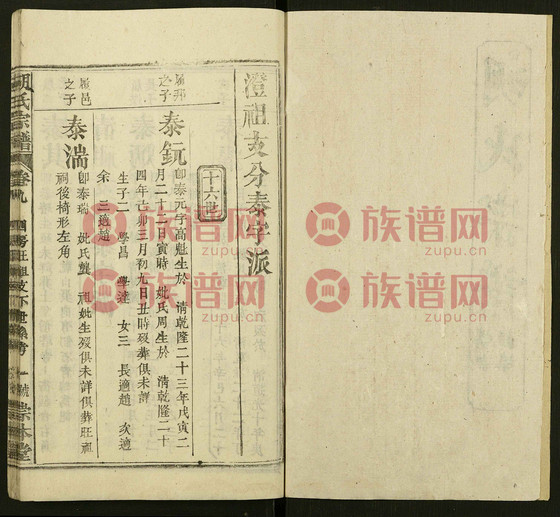 澄祖支分泰字派
十六世
履邦之子
泰鈨
即泰元字高魁生於 清乾隆二十三年戊寅二
月二十二日寅時 妣氏周生於 清乾隆二十
四年己卯三月初九日丑時歿葬俱未詳
生子二 學昌 學達 女三 長適趙 次適
余 三適趙
履邑之子
泰湍
即泰瑞 妣氏龔 祖妣生歿俱未詳俱葬旺祖
祠後椅形左角
胡氏宗譜 卷九 四房旺祖支下世系考 一號 崇本堂
族谱网
www.zupu.cn
族谱网
www.zupu.cn
族谱网
www.zupu.cn
族谱网
www.zupu.cn